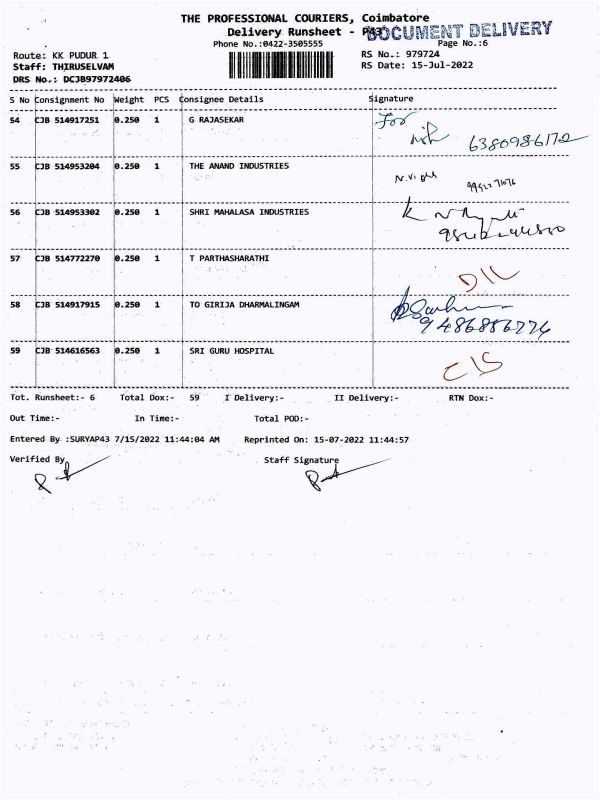 THE PROFESSIONAL COURIERS, Coimbatore
Delivery Runsheet - P43
DOCUMENT DELIVERY
Phone No.:0422-3505555
Page No.:6
Route: KK PUDUR 1
RS No.: 979724
Staff: THIRUSELVAM
RS Date: 15-Jul-2022
DRS No.: DCJB97972406
S No Consignment No Weight PCS Consignee Details Signature
54 CJB 514917251 0.250 1 G RAJASEKAR For
6380986172
55 CJB 514953204 0.250 1 THE ANAND INDUSTRIES
56 CJB 514953302 0.250 1 SHRI MAHALASA INDUSTRIES
57 CJB 514772270 0.250 1 T PARTHASHARATHI
DIL
58 CJB 514917915 0.250 1 TO GIRIJA DHARMALINGAM
9486886776
59 CJB 514616563 0.250 1 SRI GURU HOSPITAL
CIS
Tot. Runsheet:- 6 Total Dox:- 59 I Delivery:- II Delivery:- RTN Dox:-
Out Time:- In Time:- Total POD:-
Entered By :SURYAP43 7/15/2022 11:44:04 AM Reprinted On: 15-07-2022 11:44:57
Verified By Staff Signature